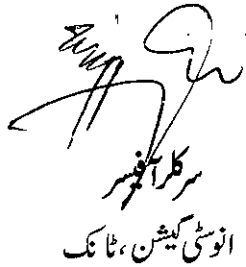 سرکلر آفیسر
انوسٹی گیشن، ٹانک